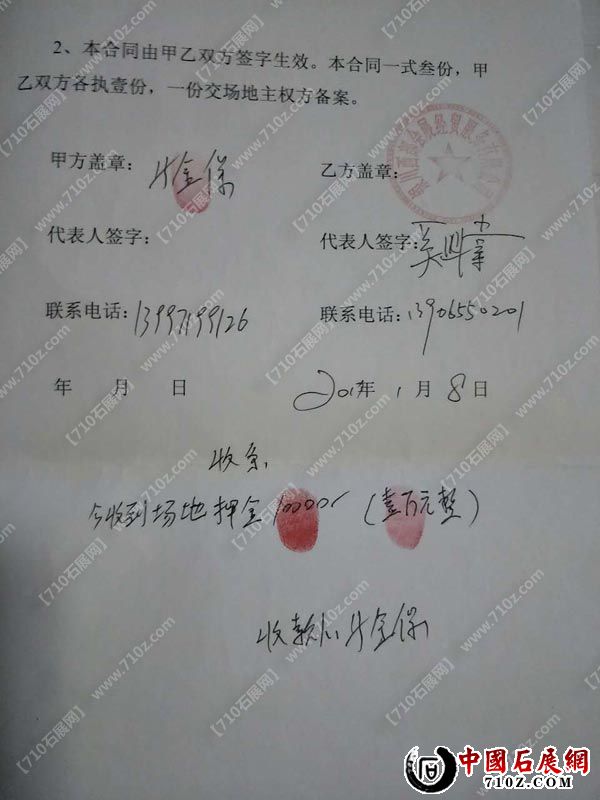 2、本合同由甲乙双方签字生效。本合同一式叁份，甲
乙双方各执壹份，一份交场地主权方备案。
甲方盖章： 牛金保
乙方盖章：
代表人签字：
代表人签字： 吴
联系电话：13997199126
联系电话：13906550201
年 月 日
201 年 1 月 8 日
收条
今收到场地押金10000 （壹万元整）
收款人：牛金保
中國石展網
710Z.COM
【710石展网】www.710z.com